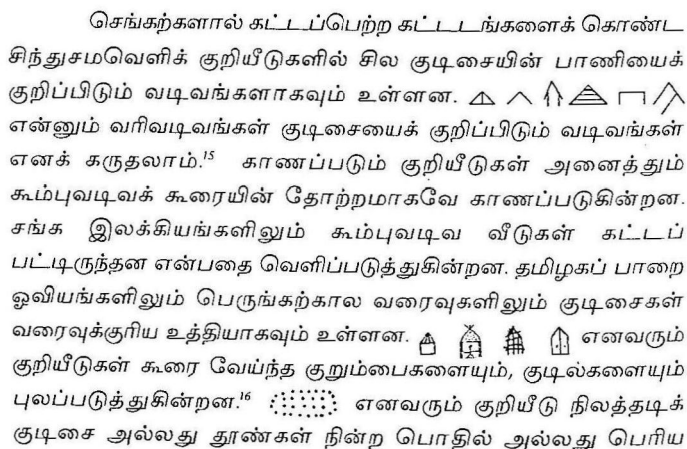 செங்கற்களால் கட்டப்பெற்ற கட்டடங்களைக் கொண்ட
சிந்துசமவெளிக் குறியீடுகளில் சில குடிசையின் பாணியைக்
குறிப்பிடும் வடிவங்களாகவும் உள்ளன.
என்னும் வரிவடிவங்கள் குடிசையைக் குறிப்பிடும் வடிவங்கள்
எனக் கருதலாம்.15 காணப்படும் குறியீடுகள் அனைத்தும்
கூம்புவடிவக் கூரையின் தோற்றமாகவே காணப்படுகின்றன.
சங்க இலக்கியங்களிலும் கூம்புவடிவ வீடுகள் கட்டப்
பட்டிருந்தன என்பதை வெளிப்படுத்துகின்றன. தமிழகப் பாறை
ஓவியங்களிலும் பெருங்கற்கால வரைவுகளிலும் குடிசைகள்
வரைவுக்குரிய உத்தியாகவும் உள்ளன. எனவரும்
குறியீடுகள் கூரை வேய்ந்த குறும்பைகளையும், குடில்களையும்
புலப்படுத்துகின்றன.16 எனவரும் குறியீடு நிலத்தடிக்
குடிசை அல்லது தூண்கள் நின்ற பொதில் அல்லது பெரிய